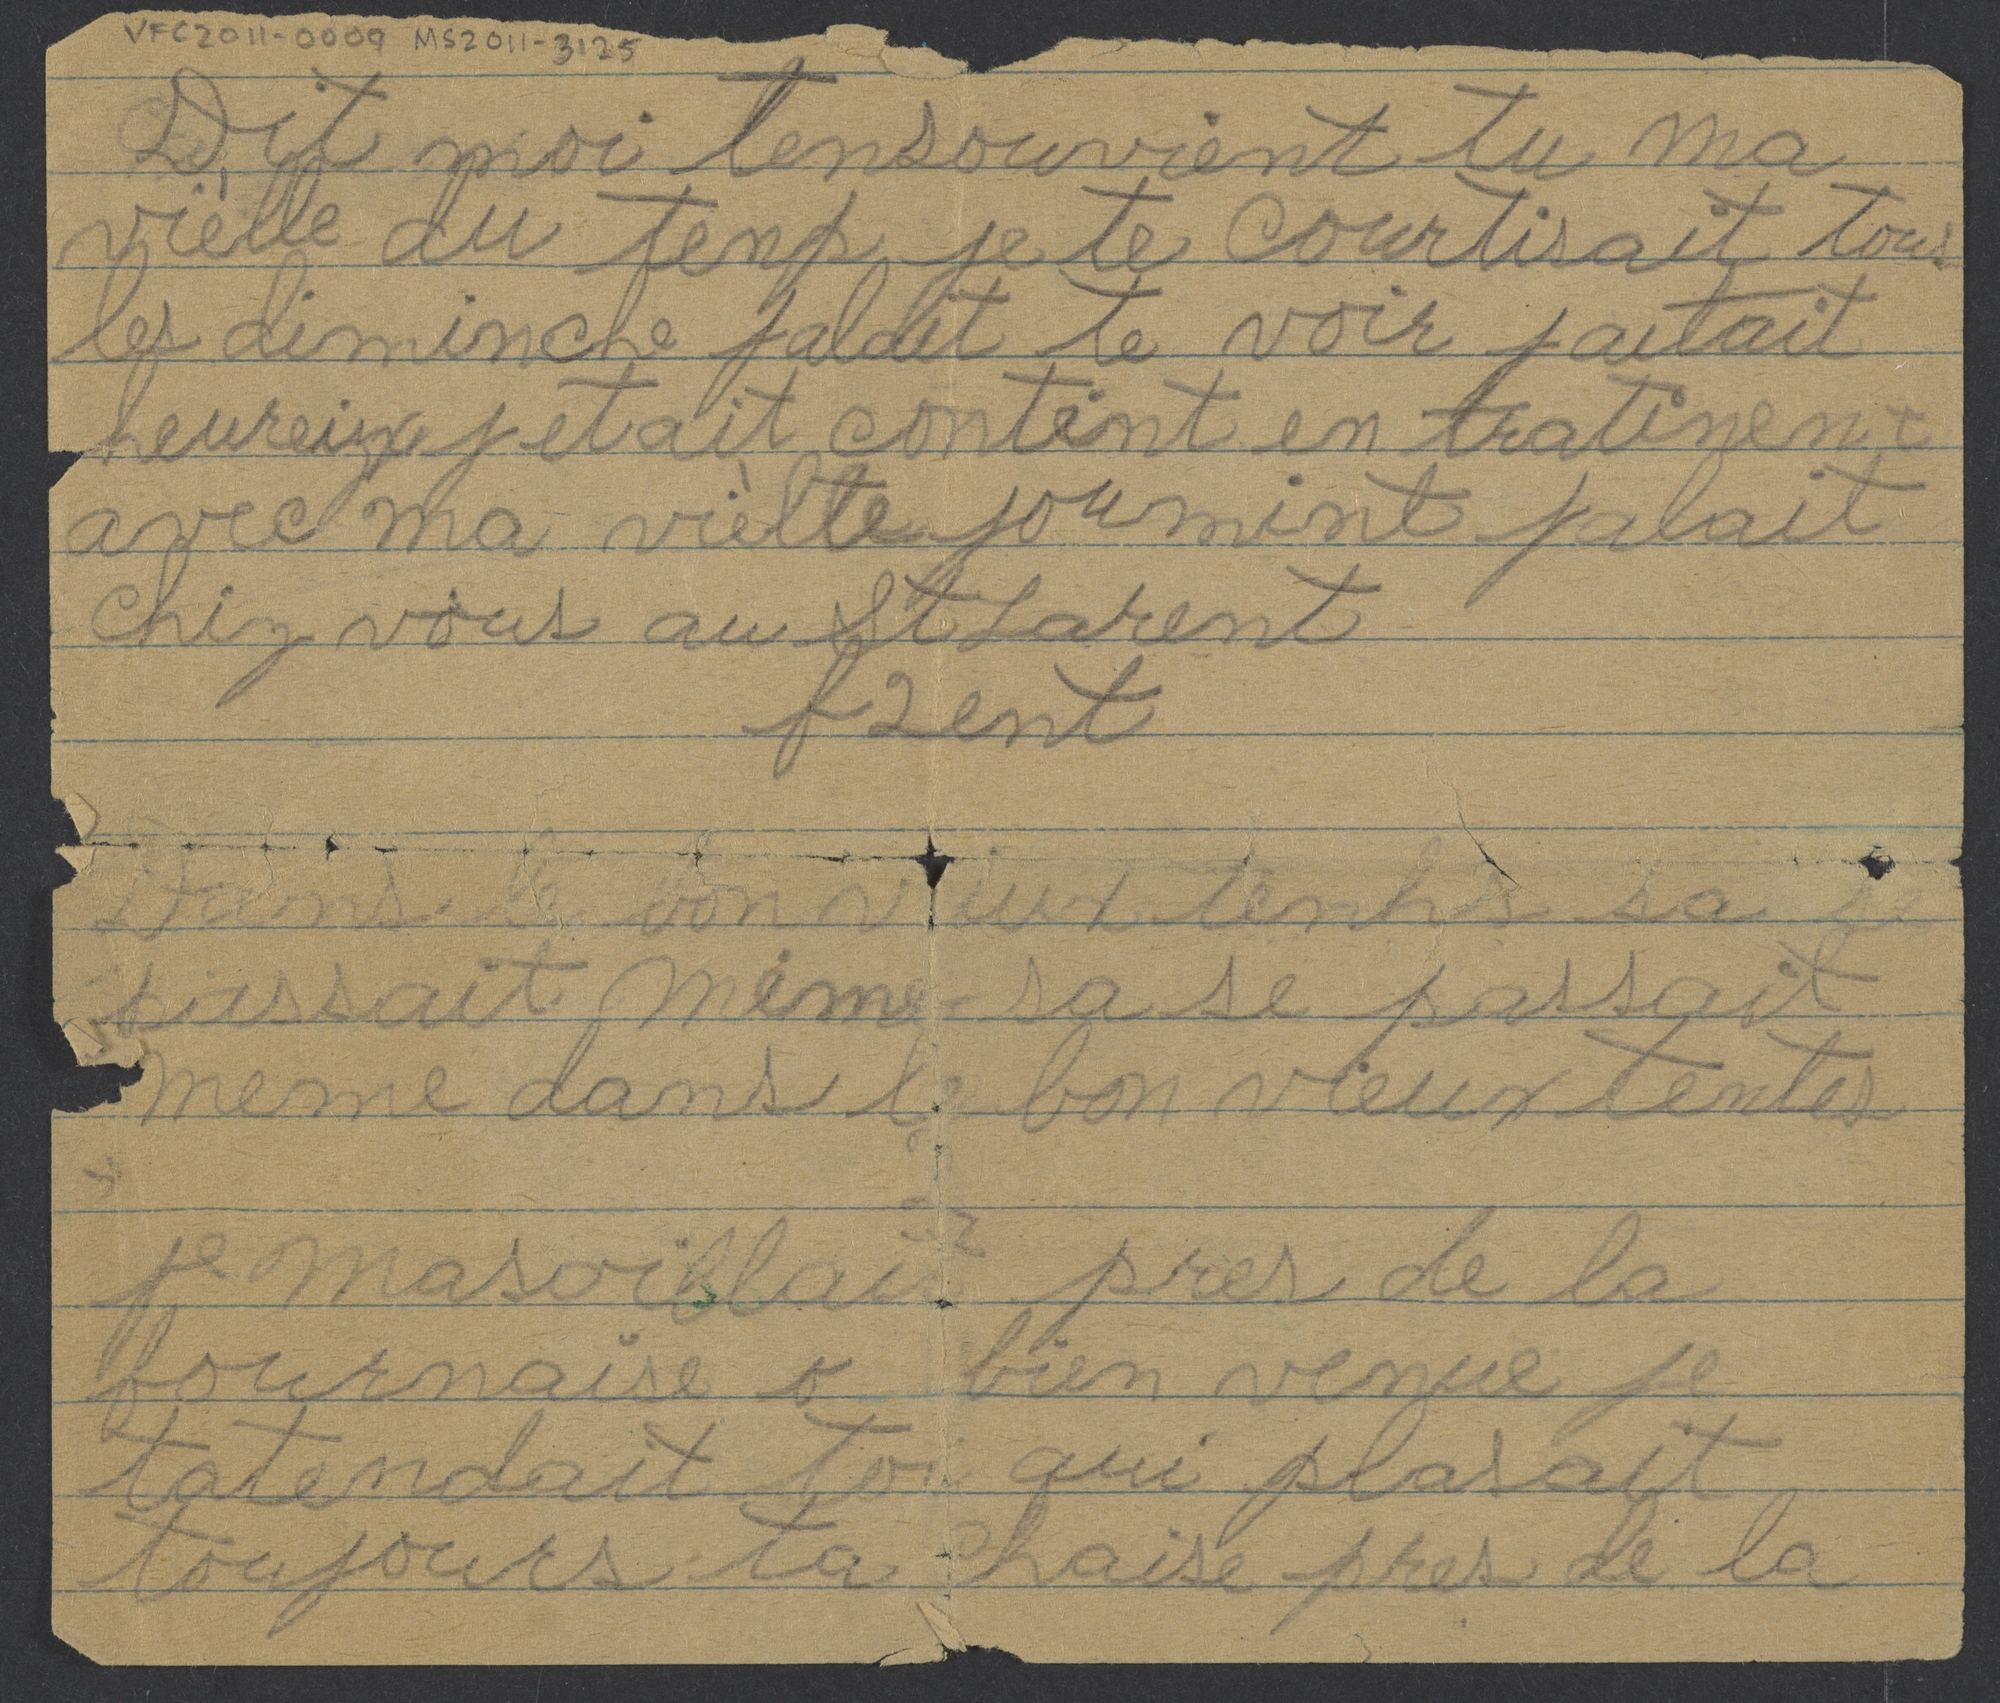 VFC2011-0009 MS2011-3125
Dit moi tensouvient tu ma
vièlle du tenp je te courtisait tous
les diminche jalait te voir jaitait
heureux jetait contint en tratinent
avec ma vièlle joumint jalait
chiz vous au St Larent
f2ent
Dans le bon vieux tenhs sa se
passait mème sa se passait
meme dans le bon vieux tentes
je masoillait pres de la
fournaise o bien venue je
tatendait toi qui plasait
toujours ta chaise pres de la